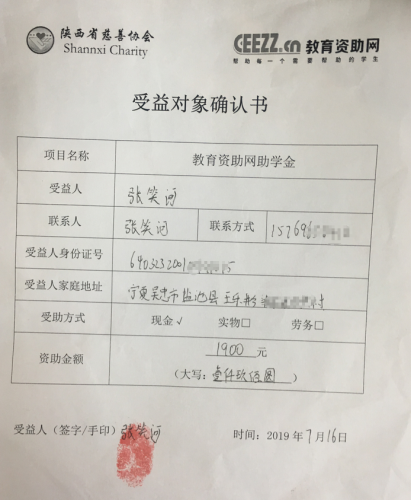 陕西省慈善协会
Shannxi Charity
GEEZZ.cn 教育资助网
帮助每一个需要帮助的学生
受益对象确认书
项目名称 教育资助网助学金
受益人 张笑问
联系人 张笑问 联系方式 157696
受益人身份证号 640323200115
受益人家庭地址 宁夏吴忠市盐池县王乐井 村
受助方式 现金√ 实物□ 劳务□
资助金额 1900 元
(大写:壹仟玖佰圆)
受益人(签字/手印)张笑问 时间:2019年7月16日